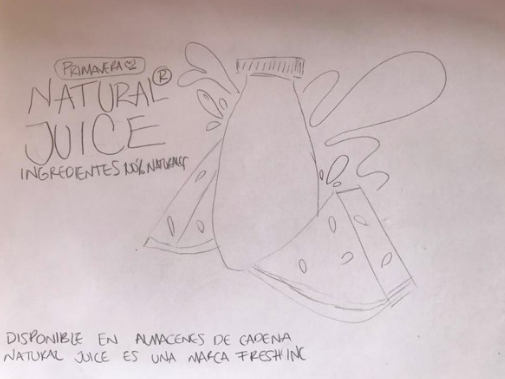 PRIMAVERA
NATURAL ®
JUICE
INGREDIENTES 100% NATURALES
DISPONIBLE EN ALMACENES DE CADENA
NATURAL JUICE ES UNA MARCA FRESH INC